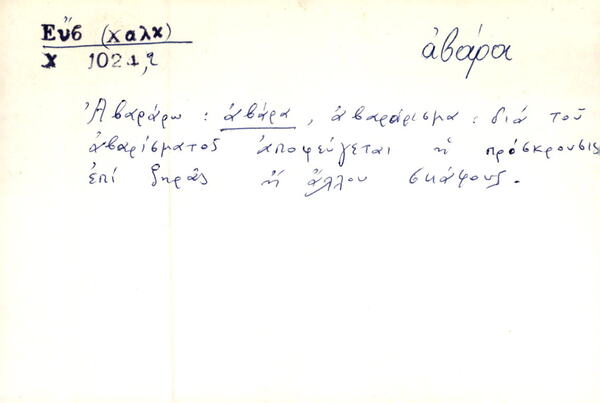 Εὔβ (χαλκ)
χ 1021,2
ἀβάρα
Ἀβαράρω : ἀβάρα, ἀβαράρισμα : διά τοῦ
ἀβαρίσματος ἀποφεύγεται ἡ πρόσκρουσις
ἐπί ξηρᾶς ἤ ἄλλου σκάφους.